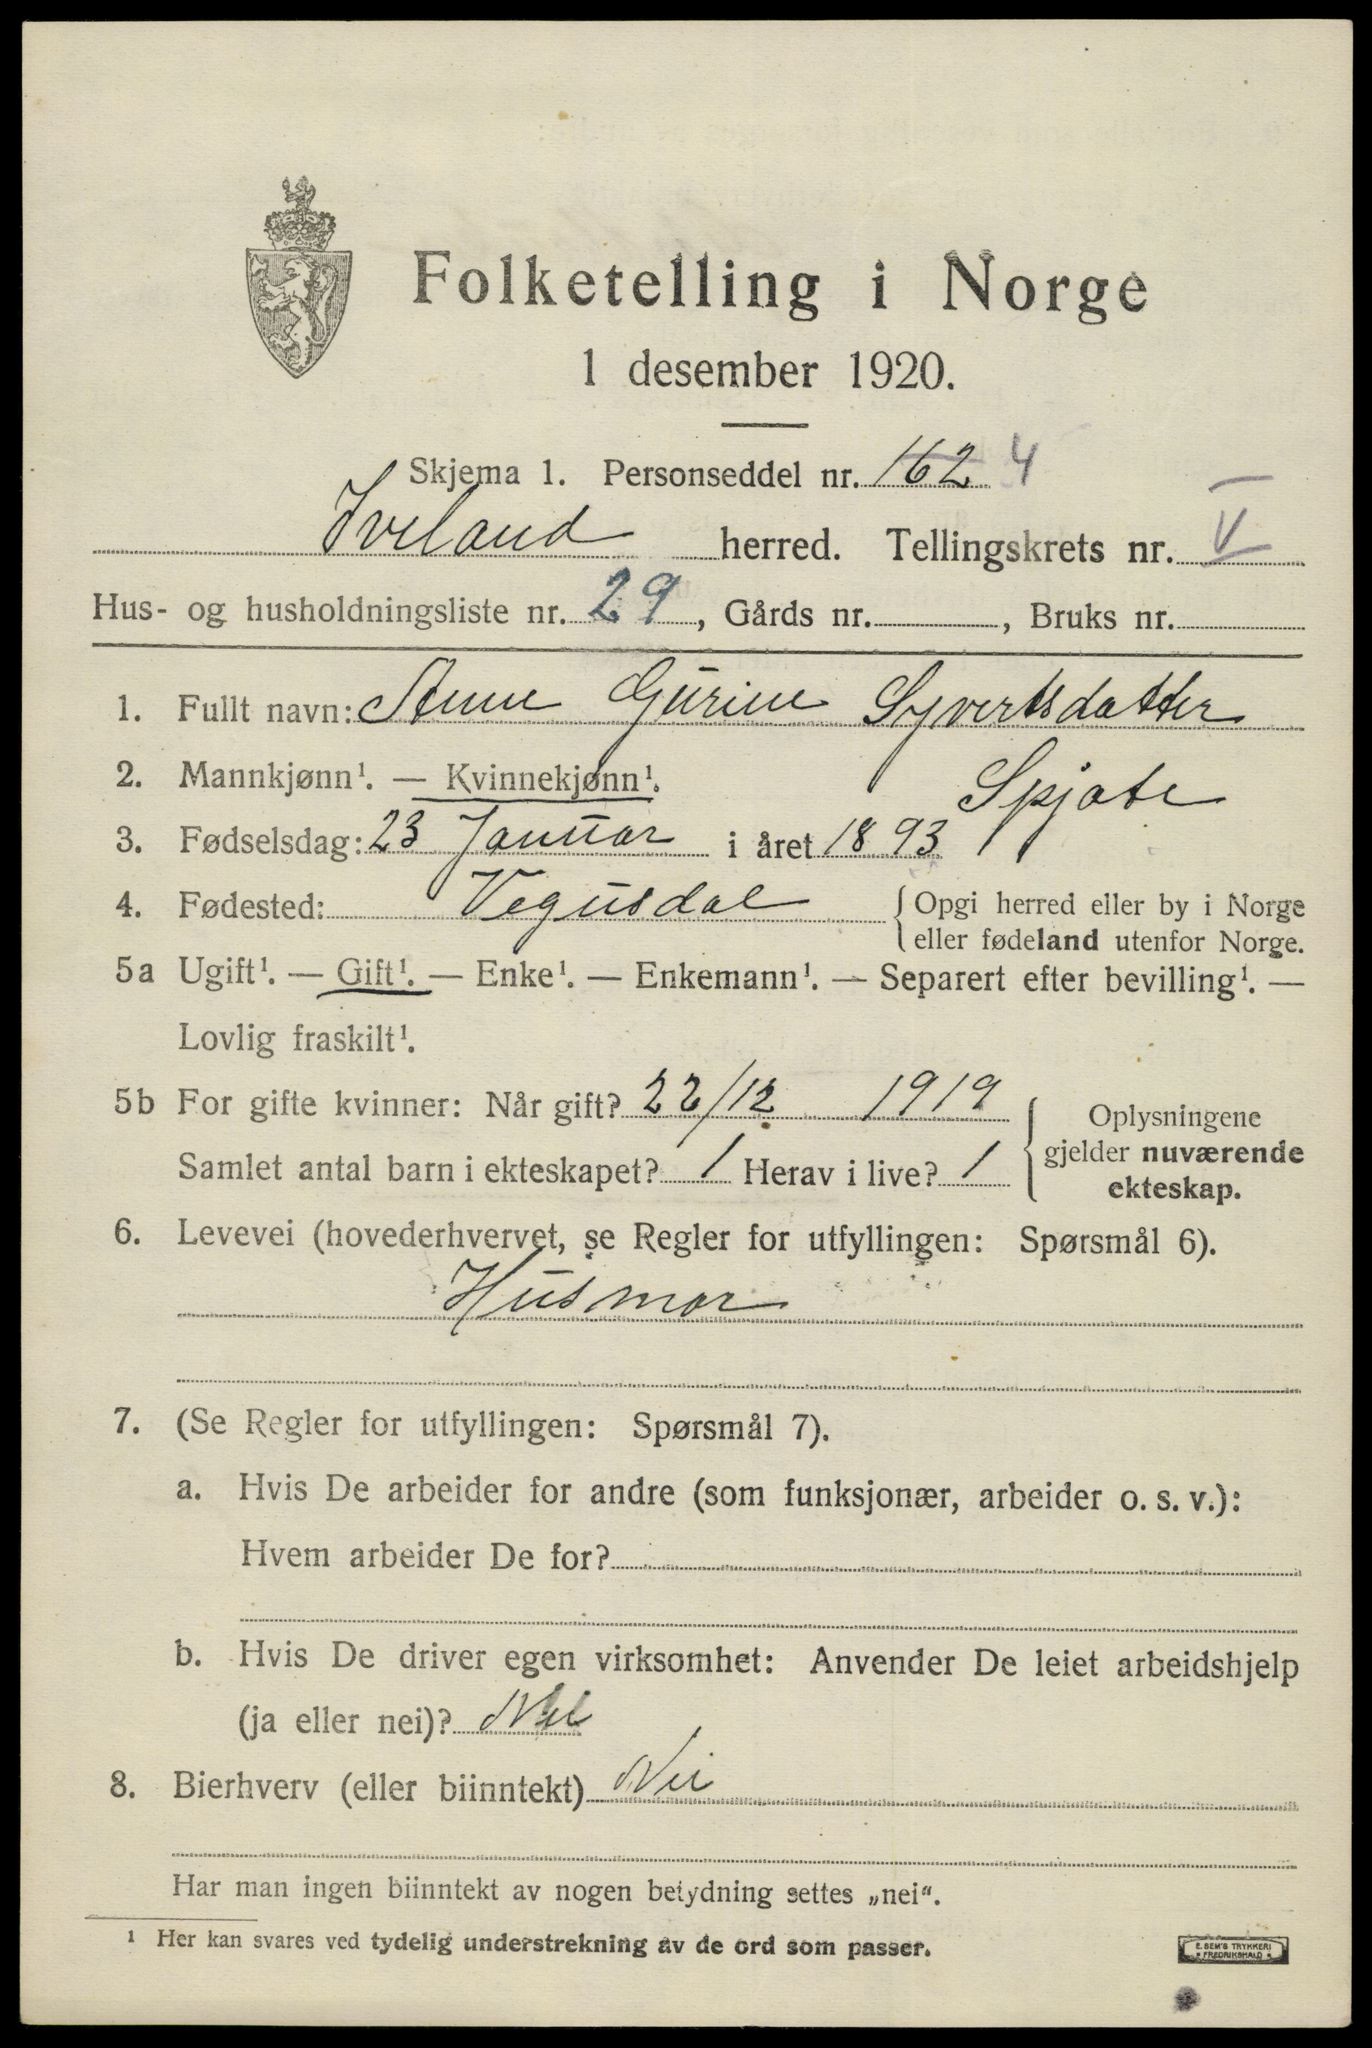 Folketelling i Norge
1 desember 1920.
Skjema 1. Personseddel nr. 162 4
Iveland herred. Tellingskrets nr. V
Hus- og husholdningsliste nr. 29, Gårds nr. , Bruks nr.
1. Fullt navn: Anne Gurine Syvertsdatter
Spjote
2. Mannkjønn¹. — Kvinnekjønn¹.
3. Fødselsdag: 23 Januar i året 1893
4. Fødested: Vegusdal { Opgi herred eller by i Norge
eller fødeland utenfor Norge.
5a Ugift¹. — Gift¹. — Enke¹. — Enkemann¹. — Separert efter bevilling¹. —
Lovlig fraskilt¹.
5b For gifte kvinner: Når gift? 22/12 1919
Samlet antal barn i ekteskapet? 1 Herav i live? 1
{ Oplysningene
gjelder nuværende
ekteskap.
6. Levevei (hovederhvervet, se Regler for utfyllingen: Spørsmål 6).
Husmor
7. (Se Regler for utfyllingen: Spørsmål 7).
a. Hvis De arbeider for andre (som funksjonær, arbeider o. s. v.):
Hvem arbeider De for?
b. Hvis De driver egen virksomhet: Anvender De leiet arbeidshjelp
(ja eller nei)? Nei
8. Bierhverv (eller biinntekt) Nei
Har man ingen biinntekt av nogen betydning settes „nei“.
¹ Her kan svares ved tydelig understrekning av de ord som passer.
E. SEM'S TRYKKERI
FREDRIKSHALD